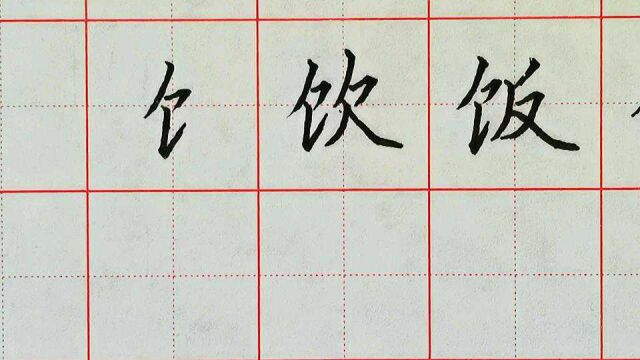 饣 饮 饭